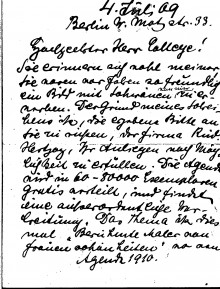 4. Juli 09
Berlin W. Motzstr. 33.
Hochgeehrter Herr College!
Sie erinnern sich wohl meiner
Sie waren vor Jahren so freundlich
ein Bild mit
Der Grund meines
ist, die ergebene Bitte an
Sie zu richten, der Firma
Hertzog, Ihr Anliegen nach Mög-
lichkeit zu erfüllen. Die Agenda
wird in 60-80000 Exemplaren
gratis verteilt, und findet
eine außerordentliche Ver-
breitung. Das Thema ist dies
mal "Berühmte Maler von
Frauenschönheiten"
Agenda 1910.